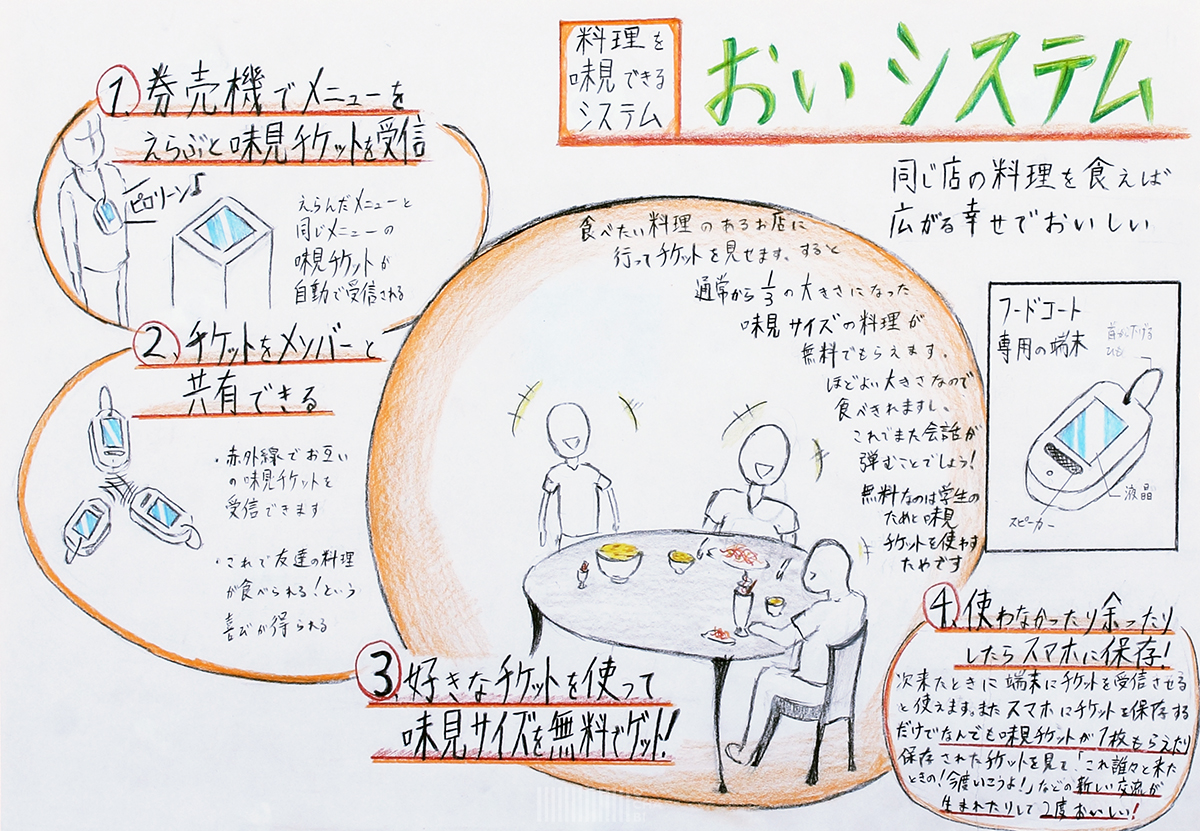 料理を
味見できる
システム
おいシステム
同じ店の料理を食えば
広がる幸せでおいしい
1. 券売機でメニューを
えらぶと味見チケットを受信
ピロリーン♪
えらんだメニューと
同じメニューの
味見チケットが
自動で受信される
2. チケットをメンバーと
共有できる
・赤外線でお互い
の味見チケットを
受信できます
・これで友達の料理
が食べられる!という
喜びが得られる
食べたい料理のあるお店に
行ってチケットを見せます。すると
通常から1/3の大きさになった
味見サイズの料理が
無料でもらえます。
ほどよい大きさなので
食べきれますし、
これでまた会話が
弾むことでしょう!
無料なのは学生の
ためと味見
チケットを使わす
ためです
3. 好きなチケットを使って
味見サイズを無料でゲット!
フードコート
専用の端末
首から下げる
ひも
液晶
スピーカー
4. 使わなかったり余ったり
したらスマホに保存!
次来たときに端末にチケットを受信させる
と使えます。またスマホにチケットを保存する
だけでなんでも味見チケットが1枚もらえたり
保存されたチケットを見て「これ誰々と来た
ときの!今度いこうよ!」などの新しい交流が
生まれたりして2度おいしい!